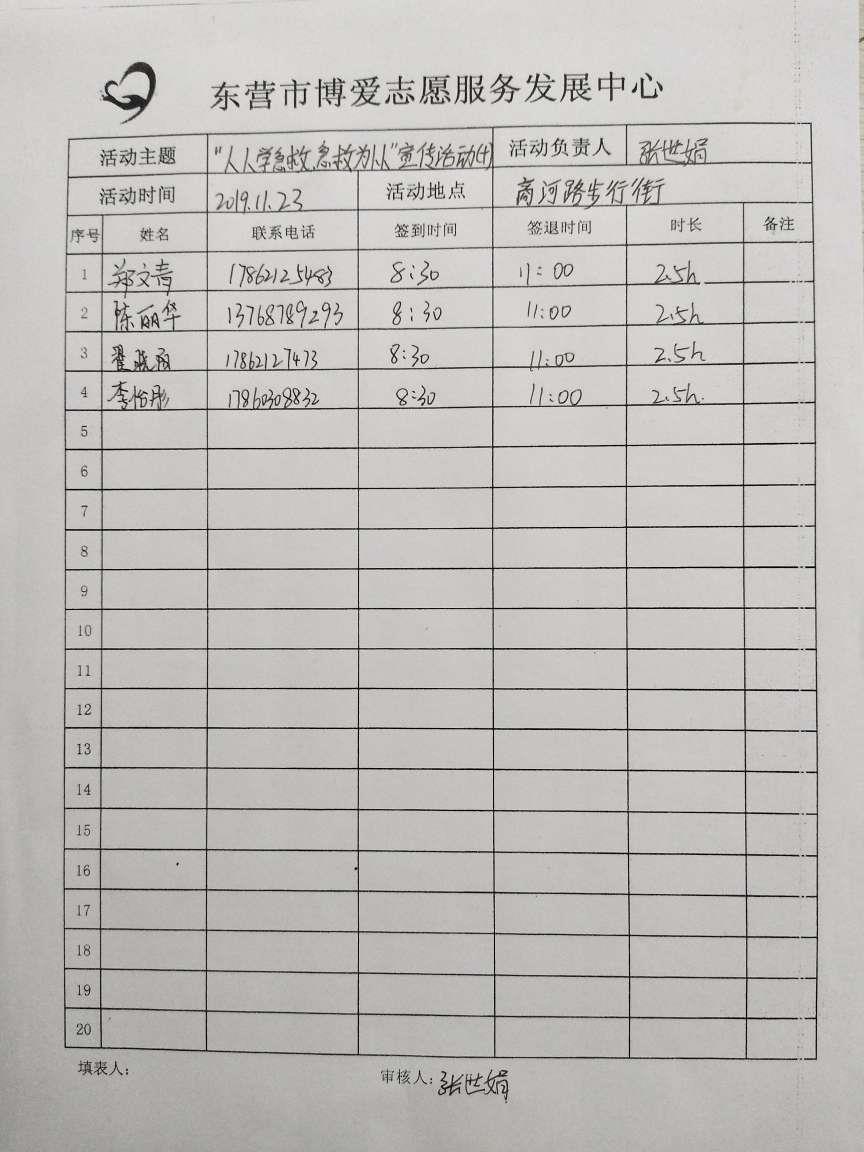 东营市博爱志愿服务发展中心
活动主题 "人人学急救,急救为人人"宣传活动(4) 活动负责人 张世娟
活动时间 2019.11.23 活动地点 商河路步行街
序号 姓名 联系电话 签到时间 签退时间 时长 备注
1 郑文青 17862125483 8:30 11:00 2.5h
2 陈丽华 13768789293 8:30 11:00 2.5h
3 翟晓雨 17862127473 8:30 11:00 2.5h
4 李怡彤 17860308832 8:30 11:00 2.5h.
5
6
7
8
9
10
11
12
13
14
15
16
17
18
19
20
填表人: 审核人:张世娟